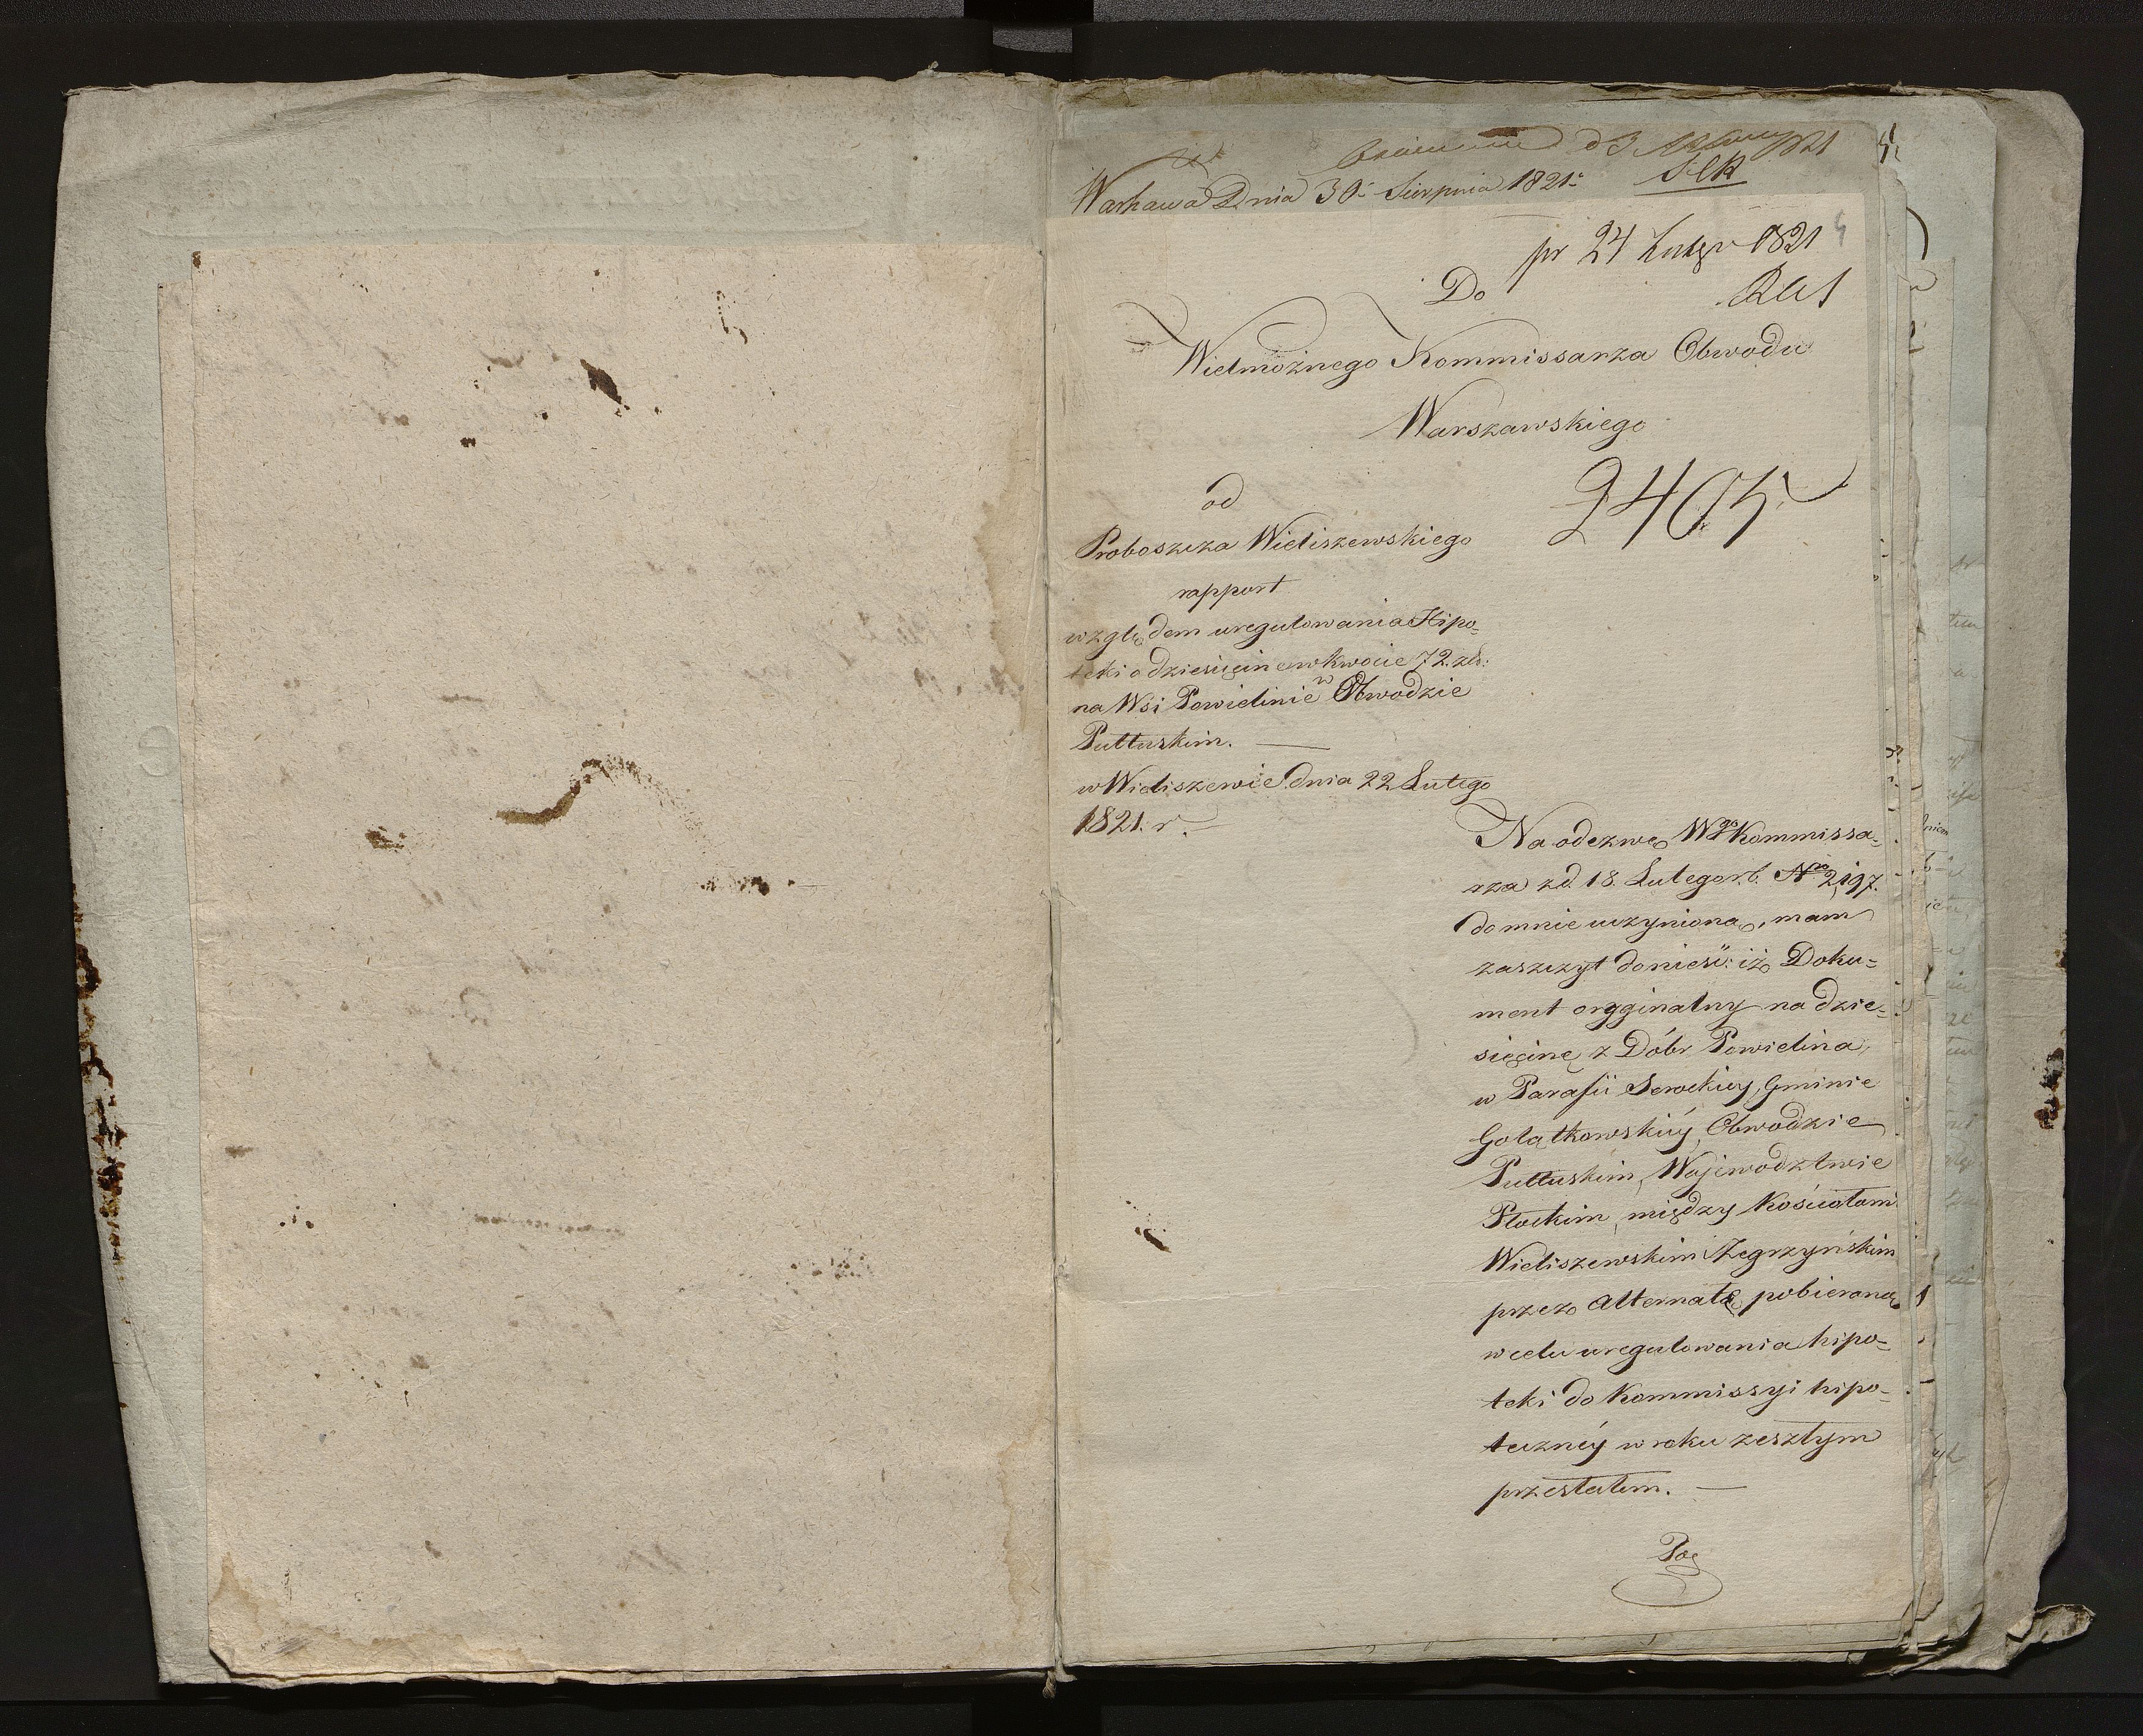 Warszawa Dnia 30 Sierpnia 1821
pr 24 Lutego 1821
Do
Wielmożnego Kommissarza Obwodu
Warszawskiego
2405
od
Proboszcza Wieliszewskiego
rapport
względem uregulowania Hipo=
teki o dziesięcinę w kwocie 72. zł:
na Wsi Powielinie w Obwodzie
Pułtuskim. —
w Wieliszewie dnia 22 Lutego
1821. r. —
Na odezwę Wgo Kommissa=
rza z d. 18. Lutego r. b. Nro 2,197.
do mnie uczynioną, mam
zaszczyt donieść: iż Doku=
ment orygginalny na dzie=
sięcinę z Dóbr Powielina,
w Parafii Serockiey, Gminie
Gołątkowskiéy, Obwodzie
Pułtuskim, Wojewodztwie
Płockim, między Kościołami
Wieliszewskim i Zegrzyńskim
przez Alternatę pobieraną
w celu uregulowania hipo=
teki do Kommissyi hipo=
tecznéy w roku zeszłym
przesłałem. —